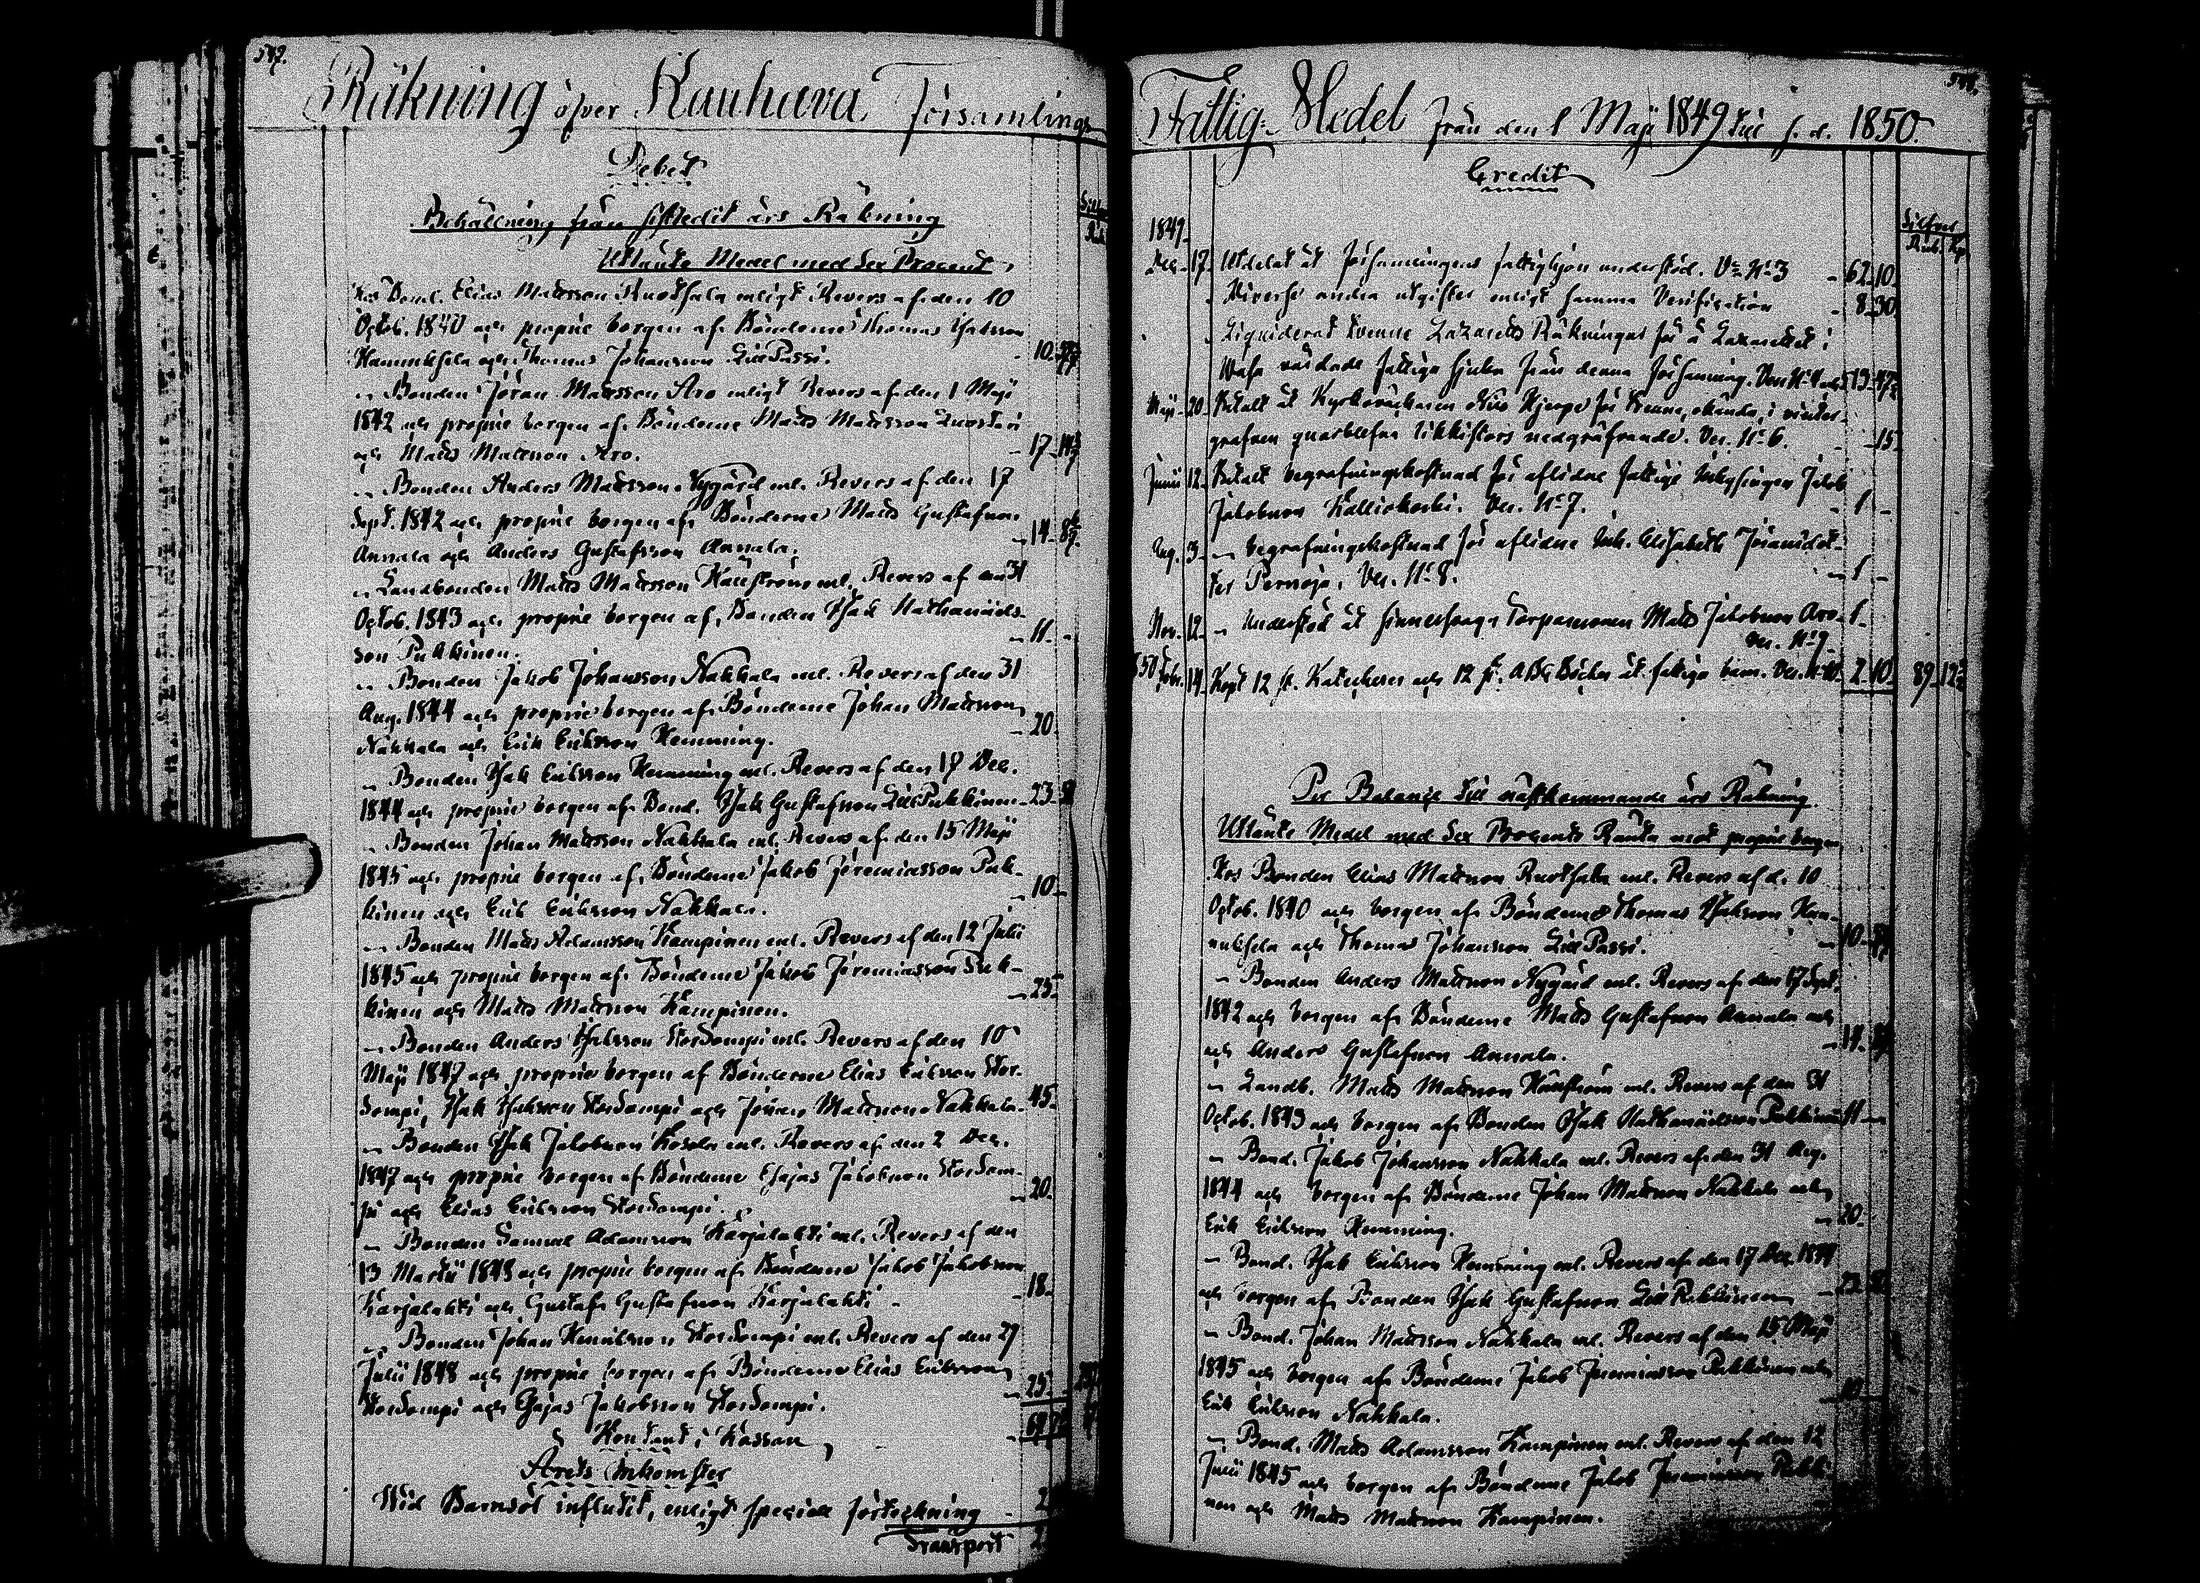 547.
Räkning öfver Kauhava Församlings
Debet
Behållning från sistledit års Räkning
Utlånte Medel med Sex Procent
Hos Bond. Elias Matsson Ruothala enligt Revers af den 10
Octob. 1840 och proprie borgen af Bönderne Thomas Isaksson
och Thomas Johansson Lill Passi. 10
" Bonden Jöran Matsson Aro enligt Revers af den 1 Maji
1842 och proprie borgen af Bönderne Matts Mattsson
och Matts Mattsson Aro. 17
" Bonden Anders Matsson Nygård enl. Revers af den 17
Sept. 1842 och proprie borgen af Bönderne Matts Gustafsson
Annala och Anders Gustafsson Annala. 14
" Landbonden Matts Matsson enl. Revers af den 31
Octob. 1843 och proprie borgen af Bonden Isak Nathanaels-
son Pukkinen. 11
" Bonden Jakob Johansson Nahkala enl. Revers af den 31
Aug. 1844 och proprie borgen af Bönderne Johan Matsson
Nahkala och Erik Eriksson Hemming. 20
" Bonden Isak Eriksson Hemming enl. Revers af den 17 Dec.
1844 och proprie borgen af Bond. Isak Gustafsson Lill Pukkinen 23
" Bonden Johan Matsson Nahkala enl. Revers af den 15 Maji
1845 och proprie borgen af Bönderne Jakob Jeremiasson Puk-
kinen och Erik Eriksson Nahkala. 10
" Bonden Matts Adamsson Kampinen enl. Revers af den 12 Julii
1845 och proprie borgen af Bönderne Jakob Jeremiasson Puk-
kinen och Matts Mattsson Kampinen. 25
" Bonden Anders Isaksson Storsompi enl. Revers af den 10
Maji 1847 och proprie borgen af Bönderne Elias Eriksson Stor-
sompi, Isak Isaksson Storsompi och Johan Matsson Nahkala 45
" Bonden Isak Jakobsson Kosola enl. Revers af den 2 Dec.
1847 och proprie borgen af Bönderne Esajas Jakobsson Storsom-
pi och Elias Eriksson Storsompi. 20
" Bonden Samuel Adamsson Karjalahti enl. Revers af den
13 Martii 1848 och proprie borgen af Bönderne Jakob Jakobsson
Karjalahti och Gustaf Gustafsson Karjalahti 18
" Bonden Johan Henriksson Storsompi enl. Revers af den 29
Julii 1848 och proprie borgen af Bönderne Elias Eriksson
Storsompi och Esajas Jakobsson Storsompi. 25
Kontant i Kassan
Årets Inkomster
Wid Barnsöl influtit, enligt special förteckning
Transport
Fattig-Medel från den 1 Maji 1849 till s. d. 1850.
Credit
Silfver
Rub. Kp.
1849.
Dec. 17 Utdelat åt Församlingens fattighjon understöd. Ver. N:o 3 62 10
Diverse andra utgifter enligt samma Verification 8 30
Liquiderat tvenne Lazaretts Räkningar för å Lazarettet i
Wasa vårdade fattiga sjuka från denna Församling. 13
Maji 20 Betalt åt Kyrkoväktaren för tvenne, okända, i vinter-
grafven quarblefna likkistors nedgräfvande. Ver. N:o 6. 15
Junii 12 Betalt begrafningskostnad för aflidne fattige Inhysingen Jakob
Jakobsson Kalliokoski. Ver. N:o 7. 1
Aug. 3 " begrafningskostnad för aflidne Inh. Elisabeth
ter Pernaja. Ver. N:o 8. 1
Nov. 12 " Understöd åt sinnessvage Torparesonen Matts Jakobsson Aro 1
Ver. N:o 9
1850 Febr. 14 Köpt 12 st. Katecheser och 12 st. ABC Böcker åt fattiga barn. Ver. N:o 10 2 10 89 12
Per Balance till nästkommande års Räkning
Utlånte Medel med Sex Procents Ränta mot proprie borgen
Hos Bonden Elias Matsson Ruothala enl. Revers af d. 10
Octob. 1840 och borgen af Bönderne Thomas Isaksson
och Thomas Johansson Lill Passi. 10
" Bonden Anders Matsson Nygård enl. Revers af den 17 Sept.
1842 och borgen af Bönderne Matts Gustafsson Annala och
och Anders Gustafsson Annala. 14
" Landb. Matts Matsson enl. Revers af den 31
Octob. 1843 och borgen af Bonden Isak Nathanaelsson Pukkinen 11
" Bond. Jakob Johansson Nahkala enl. Revers af den 31 Aug.
1844 och borgen af Bönderne Johan Matsson Nahkala och
Erik Eriksson Hemming. 20
" Bond. Isak Eriksson Hemming enl. Revers af den 17 Dec. 1844
och borgen af Bonden Isak Gustafsson Lill Pukkinen 23
" Bond. Johan Matsson Nahkala enl. Revers af den 15 Maji
1845 och borgen af Bönderne Jakob Jeremiasson Pukkinen och
Erik Eriksson Nahkala. 10
" Bond. Matts Adamsson Kampinen enl. Revers af den 12
Julii 1845 och borgen af Bönderne Jakob Jeremiasson Pukki-
nen och Matts Matsson Kampinen.